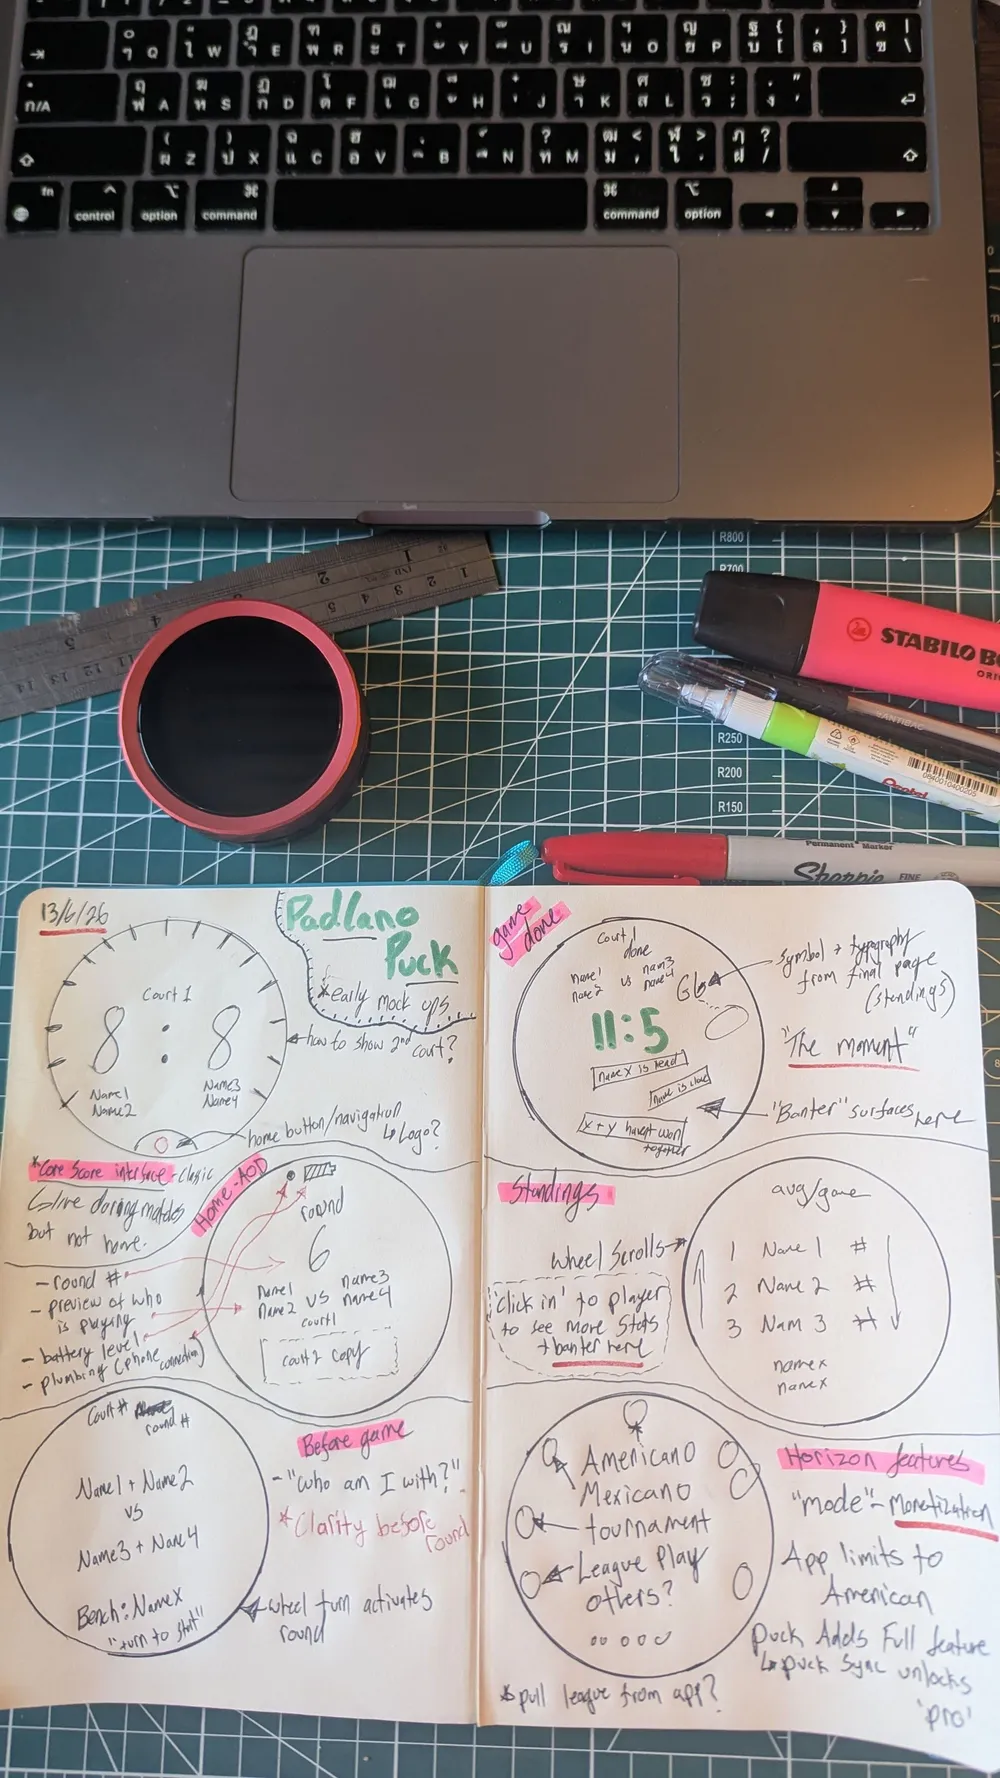 Q W E R T Y U I O P { [ } ] | \
n/A A S D F G H J K L : ; " '
Z X C V B N M < , > . ? /
fn control option command command option
R800
R700
STABILO BO
ORIGI
ANTIBAC
R250
R200
R150
Pentel
0840010400205
Permanent Marker
Sharpie FINE
13/6/26
Padlano
Puck
*early mock ups
Court 1
8 : 8
Name1
Name2
Name3
Name4
how to show 2nd court?
home button/navigation
↳ Logo?
*Core Score interface - Classic
↳ live during matches
but not home.
Home - AOD
round
6
name1
name2
vs
name3
name4
court1
court2 copy
- round #
- preview of who
is playing
- battery level
- plumbing (phone connection)
Court #
round #
Name1 + Name2
vs
Name3 + Name4
Bench: Namex
"turn to start"
Before game
- "who am I with?"
*Clarity before
round
wheel turn activates
round
game
done
Court 1
done
name1
name2
vs
nam3
name4
11:5
name x is
name is
x + y havent won
together
symbol + typography
from final page
(standings)
"The moment"
"Banter" surfaces here
Standings
wheel scrolls
'Click in' to player
to see more stats
+ banter here
avg/game
1 Name 1 #
2 Name 2 #
3 Nam 3 #
namex
namex
Americano
Mexicano
tournament
League Play
others?
*pull league from app?
Horizon features
"mode" - Monetization
App limits to
American
Puck Adds Full feature
↳ puck sync unlocks
'pro'